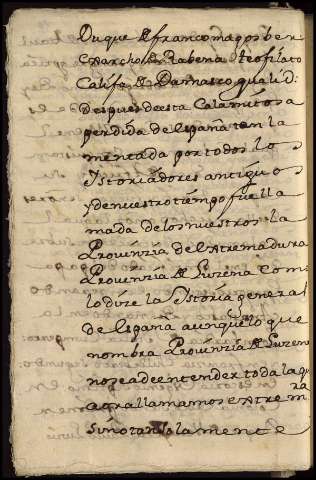 Duque de francomagos ben
Exarcho de Rabena teofilato
Califa de Damasco qual id:
despues de esta Calamitosa
perdida de españa tan la
mentada por todos los
Istoriadores antiguos
y de nuestro tiempo fue lla
mada de los nuestros la
Provinzia de Extremadura
Provinzia de Suzena com
lo dize la Istoria general
de españa aunque lo que
nombra Provinzia de Suzena
no se a de entender toda la q
agra llamamos extrem
ra
sino tan solamente